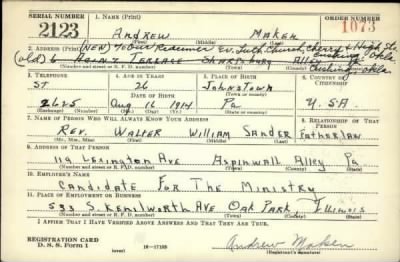 SERIAL NUMBER 1. NAME (Print) ORDER NUMBER
2123 ANDREW MAKEH 1073
(First) (Middle) (Last)
2. ADDRESS (Print) (NEW) Redeemer Ev. Luth. Church, Cherry & High Sts
Cushing Okla.
(old) 6 TERRACE Alley
Cushing, Okla.
(Number and street or R. F. D. number) (Town) (County) (State)
3. TELEPHONE 4. AGE IN YEARS 5. PLACE OF BIRTH 6. COUNTRY OF CITIZENSHIP
ST 26 JOHNSTOWN
DATE OF BIRTH (Town or county)
2625 Aug 16 1914 Pa U.SA
(Exchange) (Number) (Mo.) (Day) (Yr.) (State or country)
7. NAME OF PERSON WHO WILL ALWAYS KNOW YOUR ADDRESS 8. RELATIONSHIP OF THAT PERSON
REV. WALTER WILLIAM SANDER FatherLaw
(Mr., Mrs., Miss) (First) (Middle) (Last)
9. ADDRESS OF THAT PERSON
119 LEXINGTON AVE ASPINWALL Alley Pa
(Number and street or R. F. D. number) (Town) (County) (State)
10. EMPLOYER'S NAME
CANDIDATE FOR THE MINISTRY
11. PLACE OF EMPLOYMENT OR BUSINESS
533 S. KENILWORTH AVE OAK PARK ILLINOIS
(Number and street or R. F. D. number) (Town) (County) (State)
I AFFIRM THAT I HAVE VERIFIED ABOVE ANSWERS AND THAT THEY ARE TRUE.
REGISTRATION CARD
D. S. S. Form 1 (over) 16-17105 Andrew Makeh
(Registrant's signature)